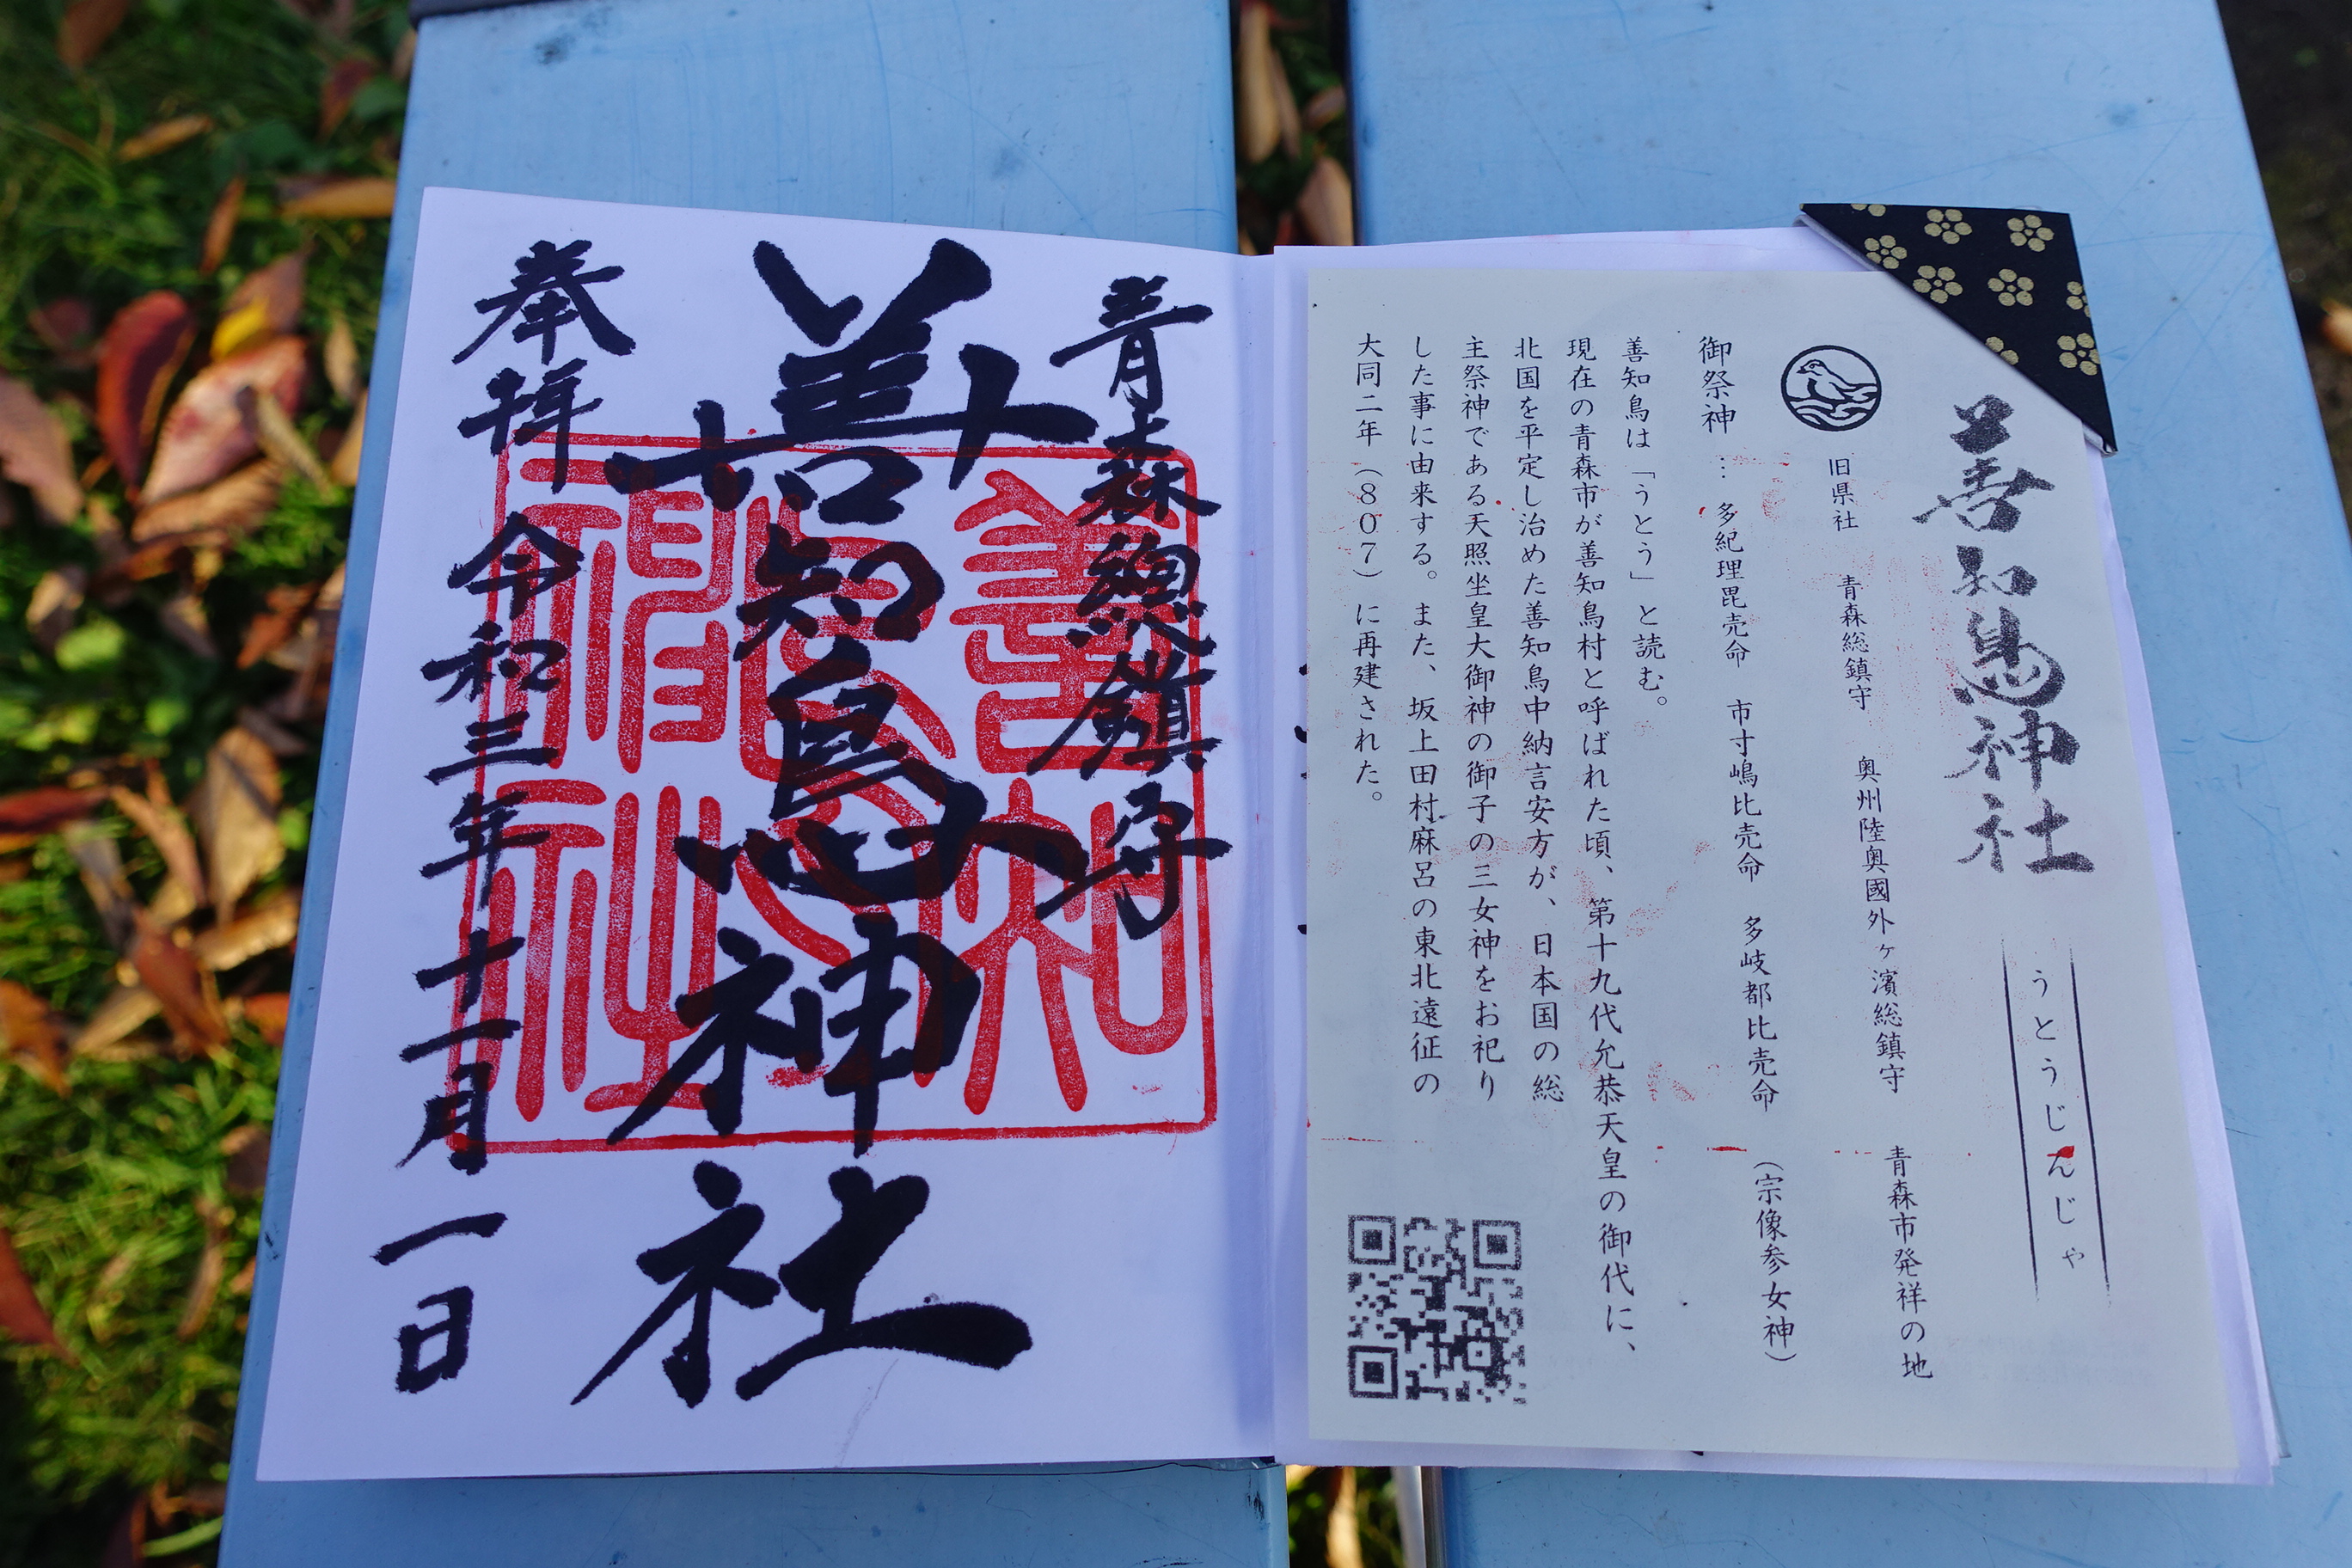 善知鳥神社
うとうじんじゃ
旧県社 青森総鎮守 奥州陸奥國外ヶ濱総鎮守 青森市発祥の地
御祭神 … 多紀理毘売命 市寸嶋比売命 多岐都比売命 (宗像参女神)
善知鳥は「うとう」と読む。
現在の青森市が善知鳥村と呼ばれた頃、第十九代允恭天皇の御代に、
北国を平定し治めた善知鳥中納言安方が、日本国の総
主祭神である天照坐皇大御神の御子の三女神をお祀り
した事に由来する。また、坂上田村麻呂の東北遠征の
大同二年(807)に再建された。
青森總鎮守
善知鳥神社
善知鳥神社
奉拝 令和三年十一月一日